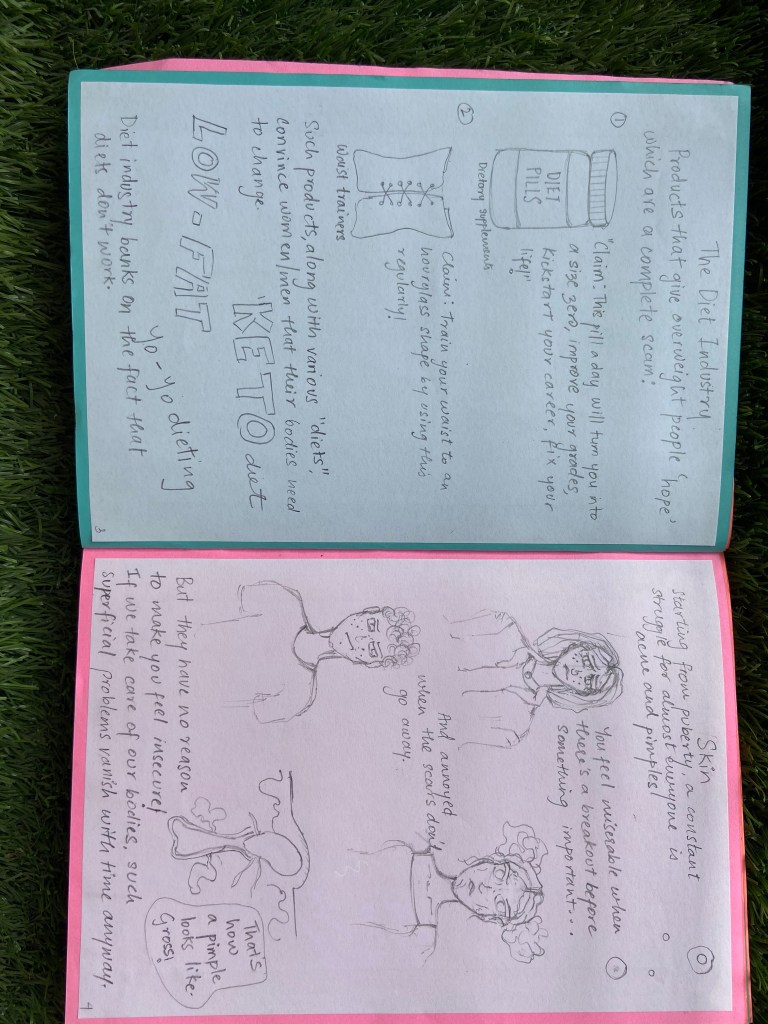 The Diet Industry
Products that give overweight people 'hope'
which are a complete scam:
①
DIET
PILLS
Dietary supplements
"Claim: This pill a day will turn you into
a size zero, improve your grades,
kickstart your career, fix your
life!"
②
Waist trainers
Claim: Train your waist to an
hourglass shape by using this
regularly!
Such products, along with various "diets"
convince women/men that their bodies need
to change.
KETO diet
LOW-FAT
yo-yo dieting
Diet industry banks on the fact that
diets don't work.
3
Skin
Starting from puberty, a constant
struggle for almost everyone is
acne and pimples!
You feel miserable when
there's a breakout before
something important...
And annoyed
when the scars don't
go away.
But they have no reason
to make you feel insecure!
If we take care of our bodies, such
superficial problems vanish with time anyway.
That's
how
a pimple
looks like.
Gross!
4